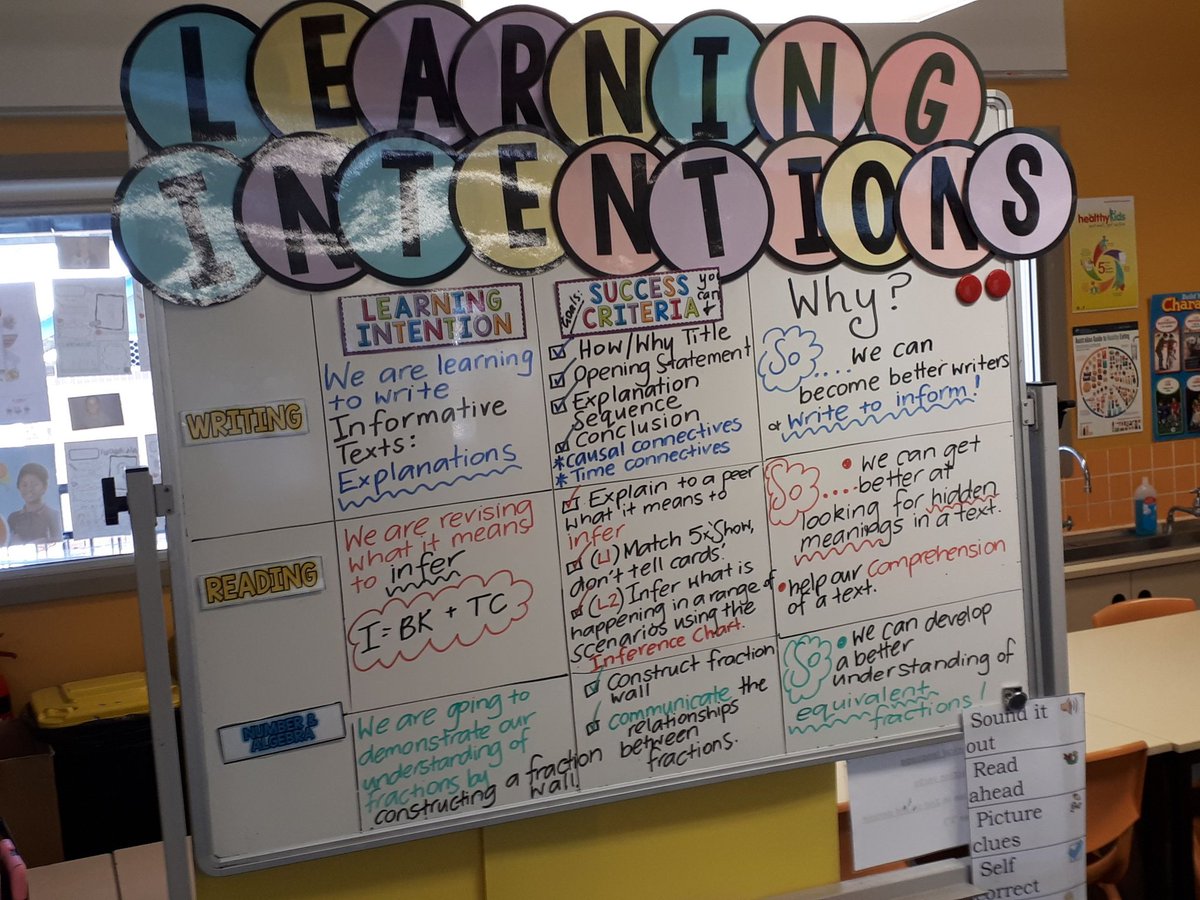 LEARNING
INTENTIONS
LEARNING
INTENTION
Goals:
SUCCESS
CRITERIA
you
can
Why?
WRITING
We are learning
to write
Informative
Texts:
Explanations
How/Why Title
Opening Statement
Explanation
Sequence
Conclusion
*causal connectives
*Time connectives
So..... we can
become better writers
write to inform!
READING
We are revising
what it means
to infer
I = BK + TC
Explain to a peer
what it means to
infer
(L1) Match 5x Show,
don't tell cards!
(L2) Infer what is
happening in a range of
scenarios using the
Inference Chart.
So.... • we can get
better at
looking for hidden
meanings in a text.
• help our comprehension
of a text.
NUMBER &
ALGEBRA
We are going to
demonstrate our
understanding of
fractions by
constructing a fraction
wall!
Construct fraction
wall
communicate the
relationships
between
fractions.
So • we can develop
a better
understanding of
equivalent
fractions!
healthy kids
5
Sound it
out
Read
ahead
Picture
clues
Self
correct